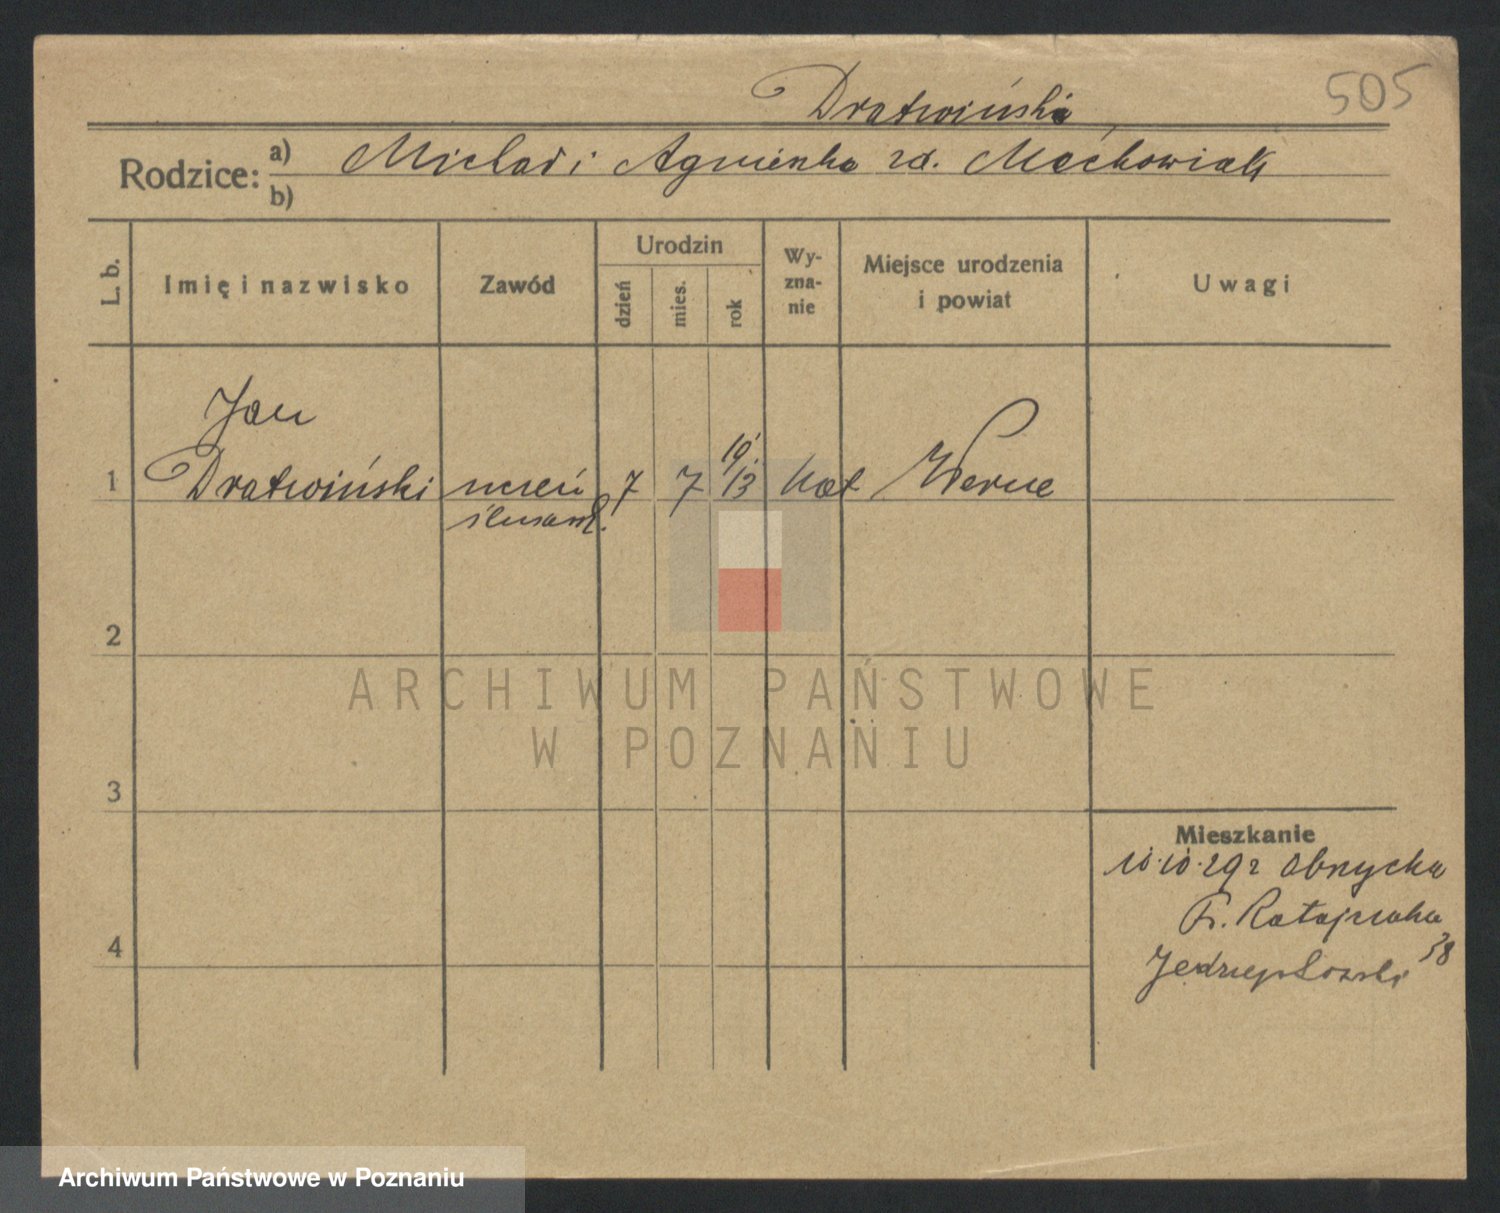 505
Dratwiński
Rodzice: a) Michał i Agnieszka zd. Maćkowiak
b)
L. b.
Imię i nazwisko
Zawód
Urodzin
dzień
mies.
rok
Wy-
zna-
nie
Miejsce urodzenia
i powiat
Uwagi
Jan
1 Dratwiński uczeń 7 7 19 13 kat Werne
ślusarz.
2
3
4
ARCHIWUM PAŃSTWOWE
W POZNANIU
Mieszkanie
10.10.29 r Obrzycka
Fr. Ratajczaka
38
Archiwum Państwowe w Poznaniu